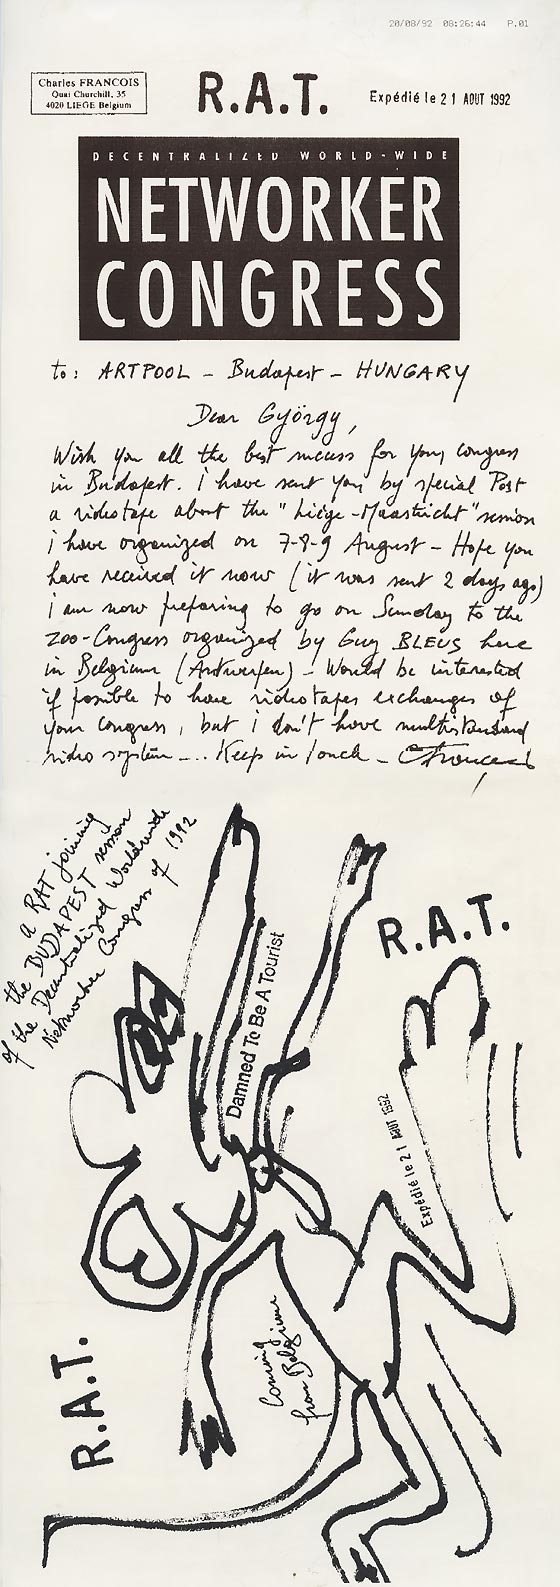 20/08/92 08:26:44 P.01
Charles FRANCOIS
Quai Churchill, 35
4020 LIEGE Belgium
R.A.T.
Expédié le 21 AOUT 1992
DECENTRALIZED WORLD-WIDE
NETWORKER
CONGRESS
to: ARTPOOL - Budapest - HUNGARY
Dear György,
Wish you all the best success for your congress
in Budapest. i have sent you by special Post
a videotape about the "Liège-Maastricht" session
i have organized on 7-8-9 August - Hope you
have received it now (it was sent 2 days ago)
i am now preparing to go on Sunday to the
Zoo-Congress organized by Guy BLEUS here
in Belgium (Antwerpen) - Would be interested
if possible to have videotapes exchanges of
your congress, but i don't have multistandard
video system .... Keep in touch - CFrancois
a RAT joining
the BUDAPEST session
of the Decentralized Worldwide
Networker Congress of 1992
R.A.T.
Damned To Be A Tourist
Expédié le 21 AOUT 1992
Coming
from Belgium
R.A.T.